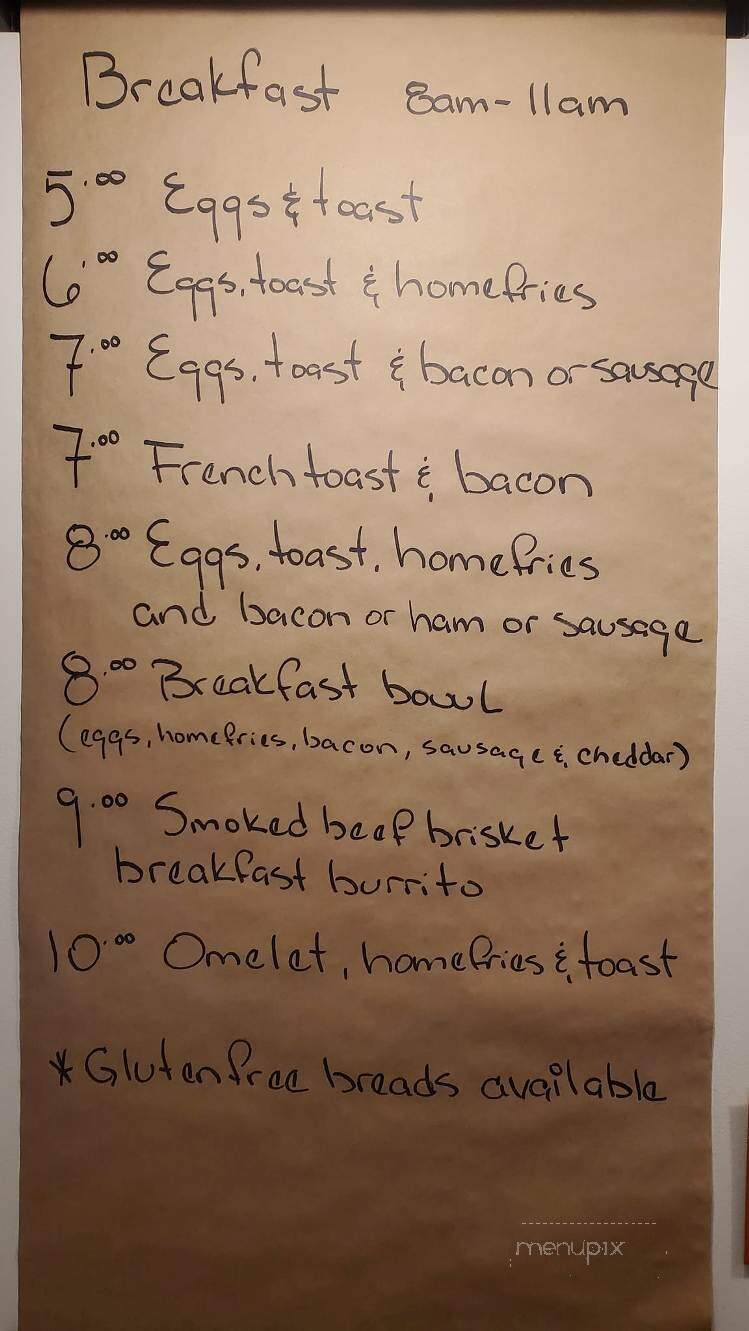 Breakfast 8am-11am
5.00 Eggs & toast
6.00 Eggs, toast & homefries
7.00 Eggs, toast & bacon or sausage
7.00 French toast & bacon
8.00 Eggs, toast, homefries
and bacon or ham or sausage
8.00 Breakfast bowl
(eggs, homefries, bacon, sausage & cheddar)
9.00 Smoked beef brisket
breakfast burrito
10.00 Omelet, homefries & toast
*Glutenfree breads available
menupix